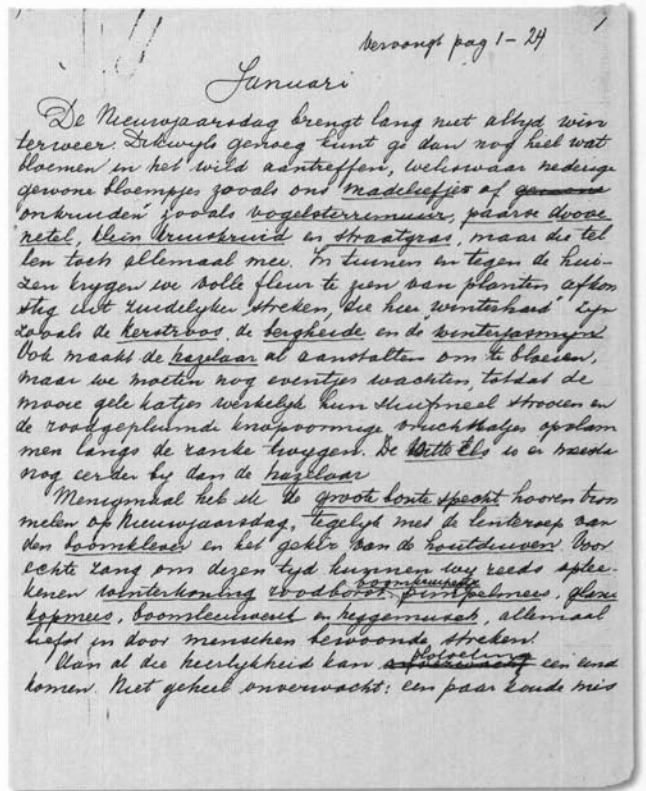 1
Vervangt pag 1-24
Januari
De Nieuwjaarsdag brengt lang niet altyd win
terweer. Dikwyls genoeg kunt ge dan nog heel wat
bloemen in het wild aantreffen, weliswaar nederige
gewone bloempjes zooals ons madeliefjes of gewone
"onkruiden" zooals vogelsterremuur, paarse doove
netel, klein kruiskruid en straatgras, maar die tel
len toch allemaal mee. In tuinen en tegen de hui-
zen krygen we volle fleur te zien van planten afkom
stig uit zuidelyker streken, die hier "winterhard" zyn
zooals de kerstroos, de bergheide en de winterjasmyn
Ook maakt de hazelaar al aanstalten om te bloeien,
maar we moeten nog eventjes wachten, totdat de
mooie gele katjes werkelyk hun stuifmeel strooien en
de roodgepluimde knopvormige vruchtkatjes opvlam
men langs de ranke twygen. De witte els is er meestal
nog eerder by dan de hazelaar
Menigmaal heb ik de groote bonte specht hooren trom
melen op Nieuwjaarsdag, tegelyk met de lenteroep van
den boomklever en het gekir van de houtduiven. Voor
echte zang om dezen tyd kunnen wy reeds optee-
kenen winterkoning roodborst, boomkruiper pimpelmees, glans
kopmees, boomleeuwerik en heggemusch, allemaal
liefst in door menschen bewoonde streken.
Aan al die heerlykheid kan plotseling een eind
komen. Niet geheel onverwacht: een paar koude mis